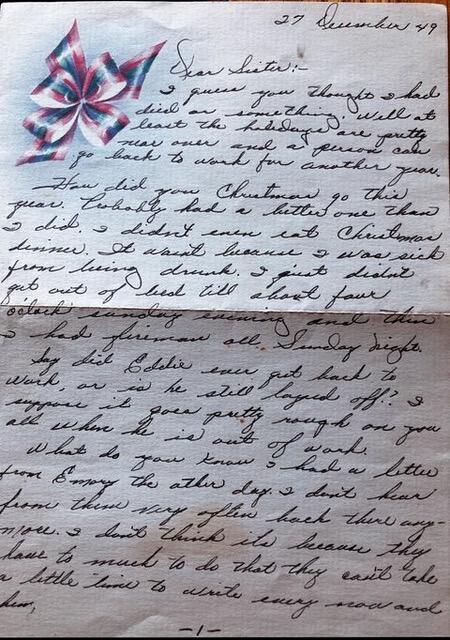 27 December 49
Dear Sister:-
I guess you thought I had
died or something. Well at
least the holidays are pretty
near over and a person can
go back to work for another year.
How did you Christmas go this
year. Probably had a better one than
I did. I didn't even eat Christmas
dinner. It wasnt because I was sick
from being drunk. I just didnt
get out of bed till about four
o'clock Sunday evening and then
I had fireman all Sunday night.
Say did Eddie ever get back to
work, or is he still layed off? I
suppose it goes pretty rough on you
all when he is out of work.
What do you know I had a letter
from Emory the other day. I don't hear
from them very often back there any-
more. I don't think its because they
have to much to do that they can't take
a little time to write every now and
then.
-1-